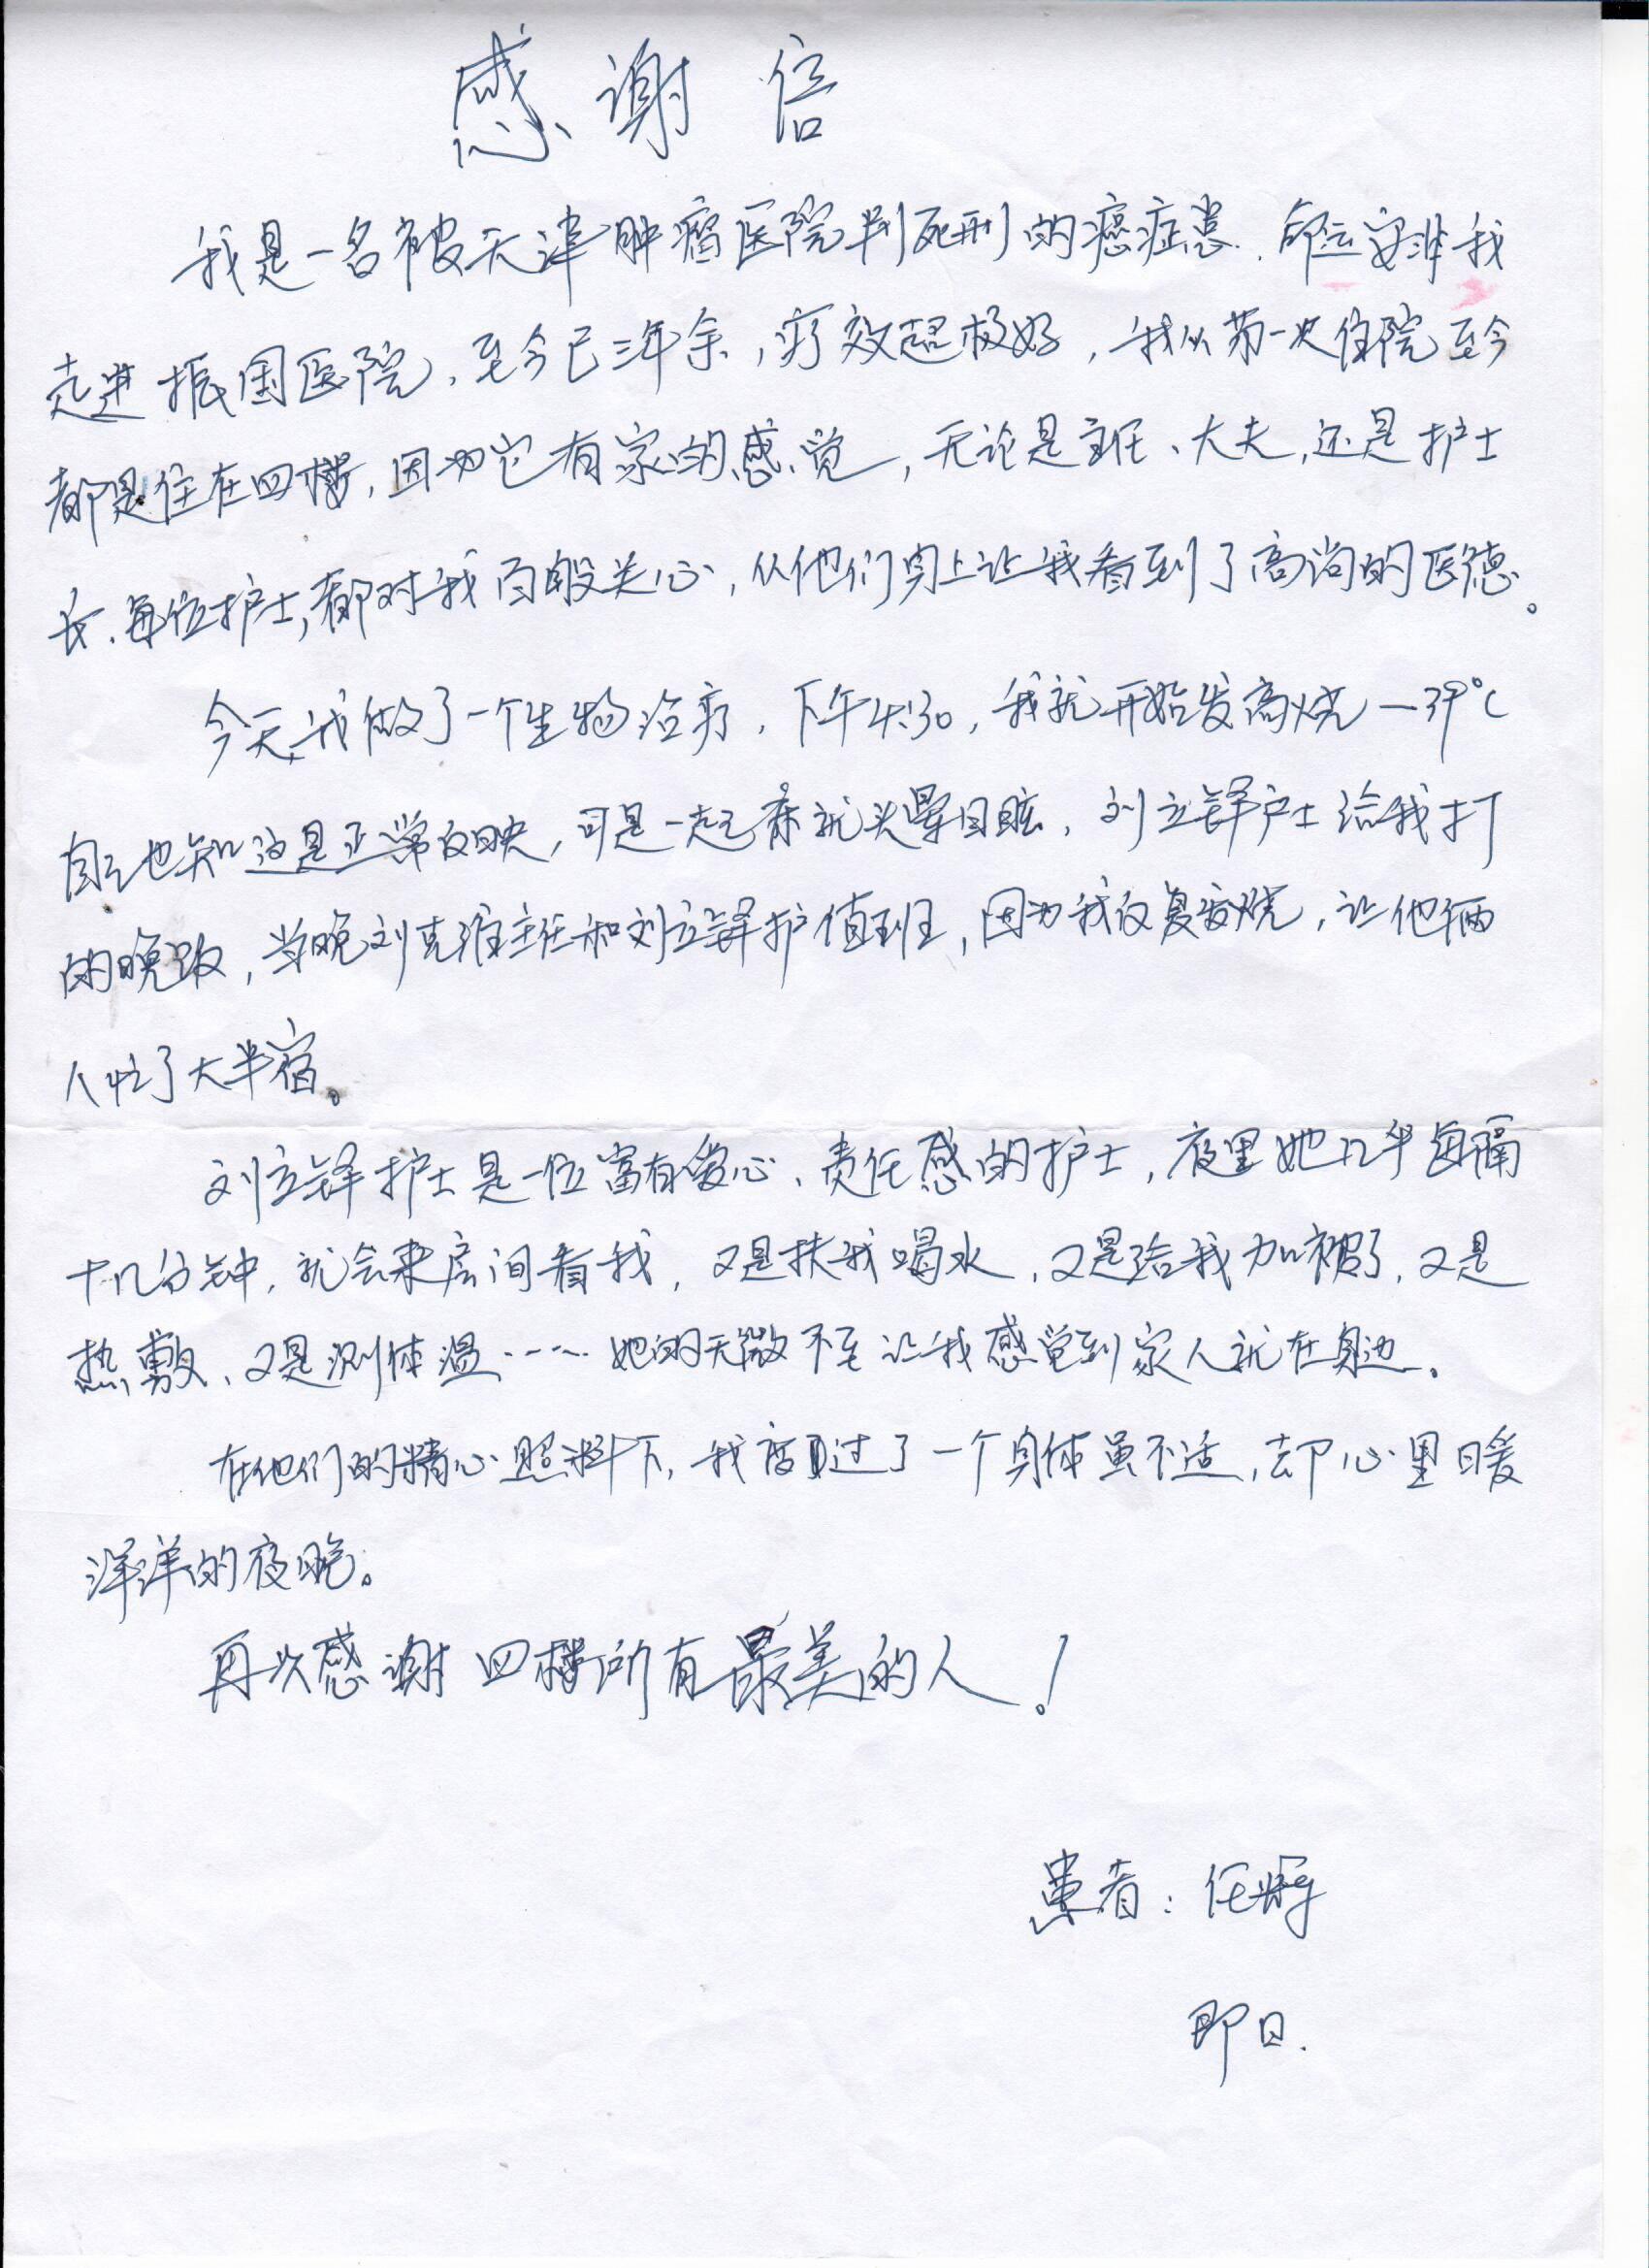 感谢信
我是一名被天津肿瘤医院判死刑的癌症患.命运安排我
走进振国医院、至今已三年余,疗效超极好,我从第一次住院至今
都是住在四楼,因为它有家的感觉,无论是主任、大夫,还是护士
长、每位护士,都对我百般关心,从他们身上让我看到了高尚的医德。
今天我做了一个生物治疗,下午4:30,我就开始发高烧—39℃
自己也知这是正常反映,可是一起床就头晕目眩,刘立铎护士给我打
的晚饭,当晚刘克维主任和刘立铎护值班,因为我反复发烧,让他俩
人忙了大半宿。
刘立铎护士是一位富有爱心、责任感的护士,夜里她几乎每隔
十几分钟,就会来房间看我,又是扶我喝水,又是给我加被子,又是
热敷、又是测体温……她的无微不至让我感觉到家人就在身边。
在他们的精心照料下,我度过了一个身体虽不适,却心里暖
洋洋的夜晚。
再次感谢四楼所有最美的人!
患者:任
即日.